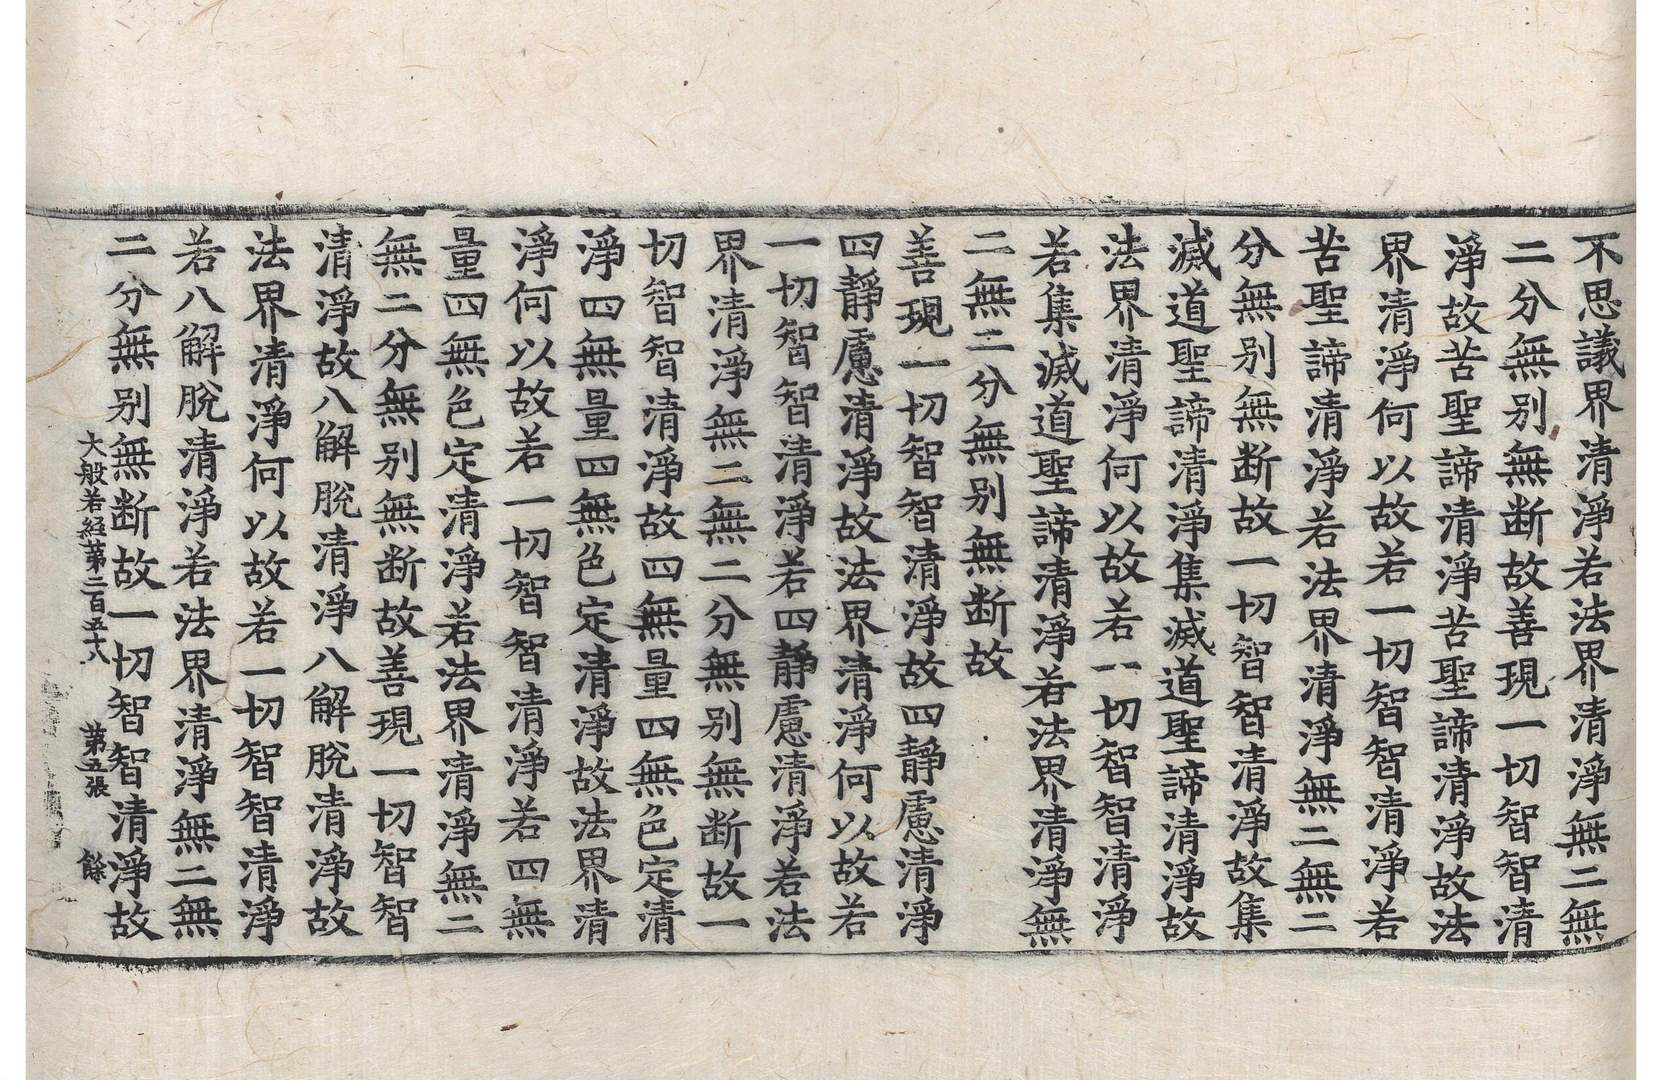 不思議界清淨若法界清淨無二無
二分無别無断故善現一切智智清
淨故苦聖諦清淨苦聖諦清淨故法
界清淨何以故若一切智智清淨若
苦聖諦清淨若法界清淨無二無二
分無别無断故一切智智清淨故集
滅道聖諦清淨集滅道聖諦清淨故
法界清淨何以故若一切智智清淨
若集滅道聖諦清淨若法界清淨無
二無二分無别無断故
善現一切智智清淨故四靜慮清淨
四靜慮清淨故法界清淨何以故若
一切智智清淨若四靜慮清淨若法
界清淨無二無二分無别無断故一
切智智清淨故四無量四無色定清
淨四無量四無色定清淨故法界清
淨何以故若一切智智清淨若四無
量四無色定清淨若法界清淨無二
無二分無别無断故善現一切智智
清淨故八解脫清淨八解脫清淨故
法界清淨何以故若一切智智清淨
若八解脫清淨若法界清淨無二無
二分無别無断故一切智智清淨故
大般若經第二百五十八 第五張 餘